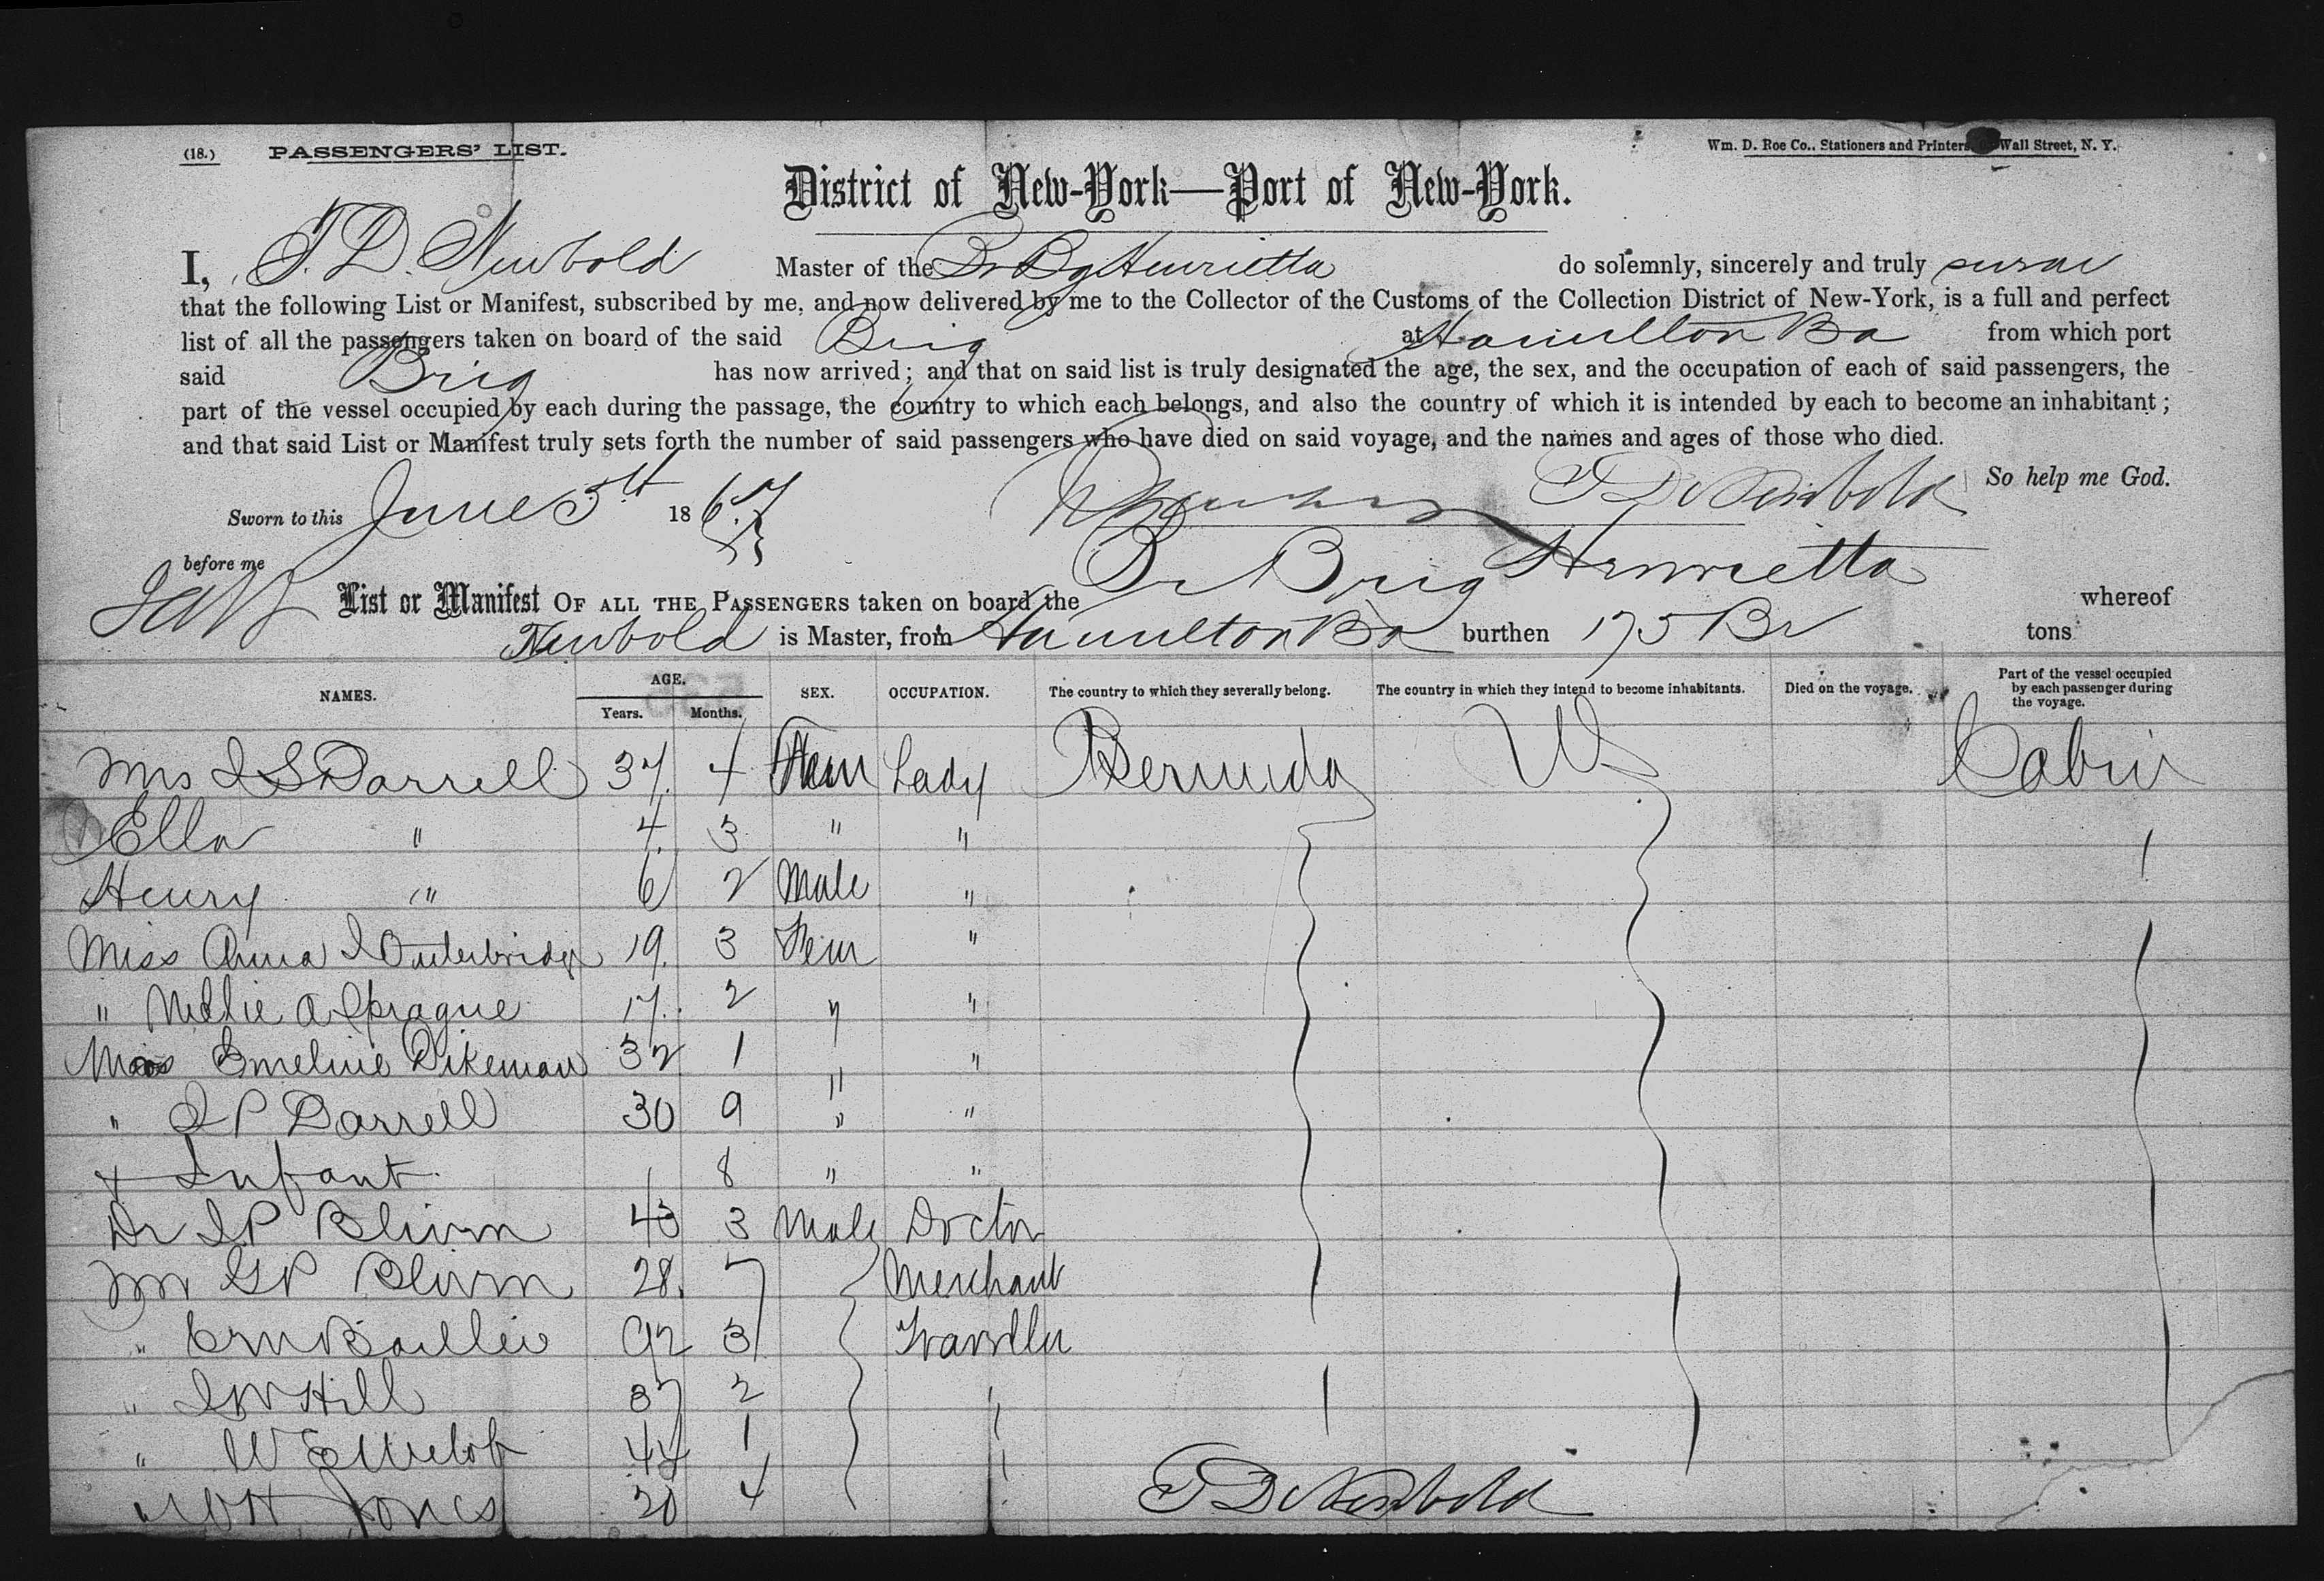 (18.) PASSENGERS' LIST.
Wm. D. Roe Co., Stationers and Printers, Wall Street, N. Y.
District of New-York—Port of New-York.
I, T. D. Newbold Master of the Br Bg Henrietta do solemnly, sincerely and truly swear
that the following List or Manifest, subscribed by me, and now delivered by me to the Collector of the Customs of the Collection District of New-York, is a full and perfect
list of all the passengers taken on board of the said Brig at Hamilton Ba from which port
said Brig has now arrived; and that on said list is truly designated the age, the sex, and the occupation of each of said passengers, the
part of the vessel occupied by each during the passage, the country to which each belongs, and also the country of which it is intended by each to become an inhabitant;
and that said List or Manifest truly sets forth the number of said passengers who have died on said voyage, and the names and ages of those who died.
So help me God.
Sworn to this June 5th 1867 T D Newbold
before me
List or Manifest OF ALL THE PASSENGERS taken on board the Br Brig Henrietta whereof
Newbold is Master, from Hamilton Ba burthen 175 Br tons
NAMES. AGE. Years. Months. SEX. OCCUPATION. The country to which they severally belong. The country in which they intend to become inhabitants. Died on the voyage. Part of the vessel occupied by each passenger during the voyage.
Mrs I S Darrell 37 4 Fem Lady Bermuda Cabin
Ella " 4 3 " "
Henry " 6 2 Male "
Miss Anna I Outerbridge 19 3 Fem "
" Nellie A Sprague 17 2 " "
Emeline Dikeman 32 1 " "
" I P Darrell 30 9 " "
+ Infant 8 " "
Dr I P Bliven 43 3 Male Doctor
Mr G P Bliven 28 7 Merchant
" 3 Traveller
" I W Hill 37 2
" W E 44 1
" W H Jones 20 4
T D Newbold